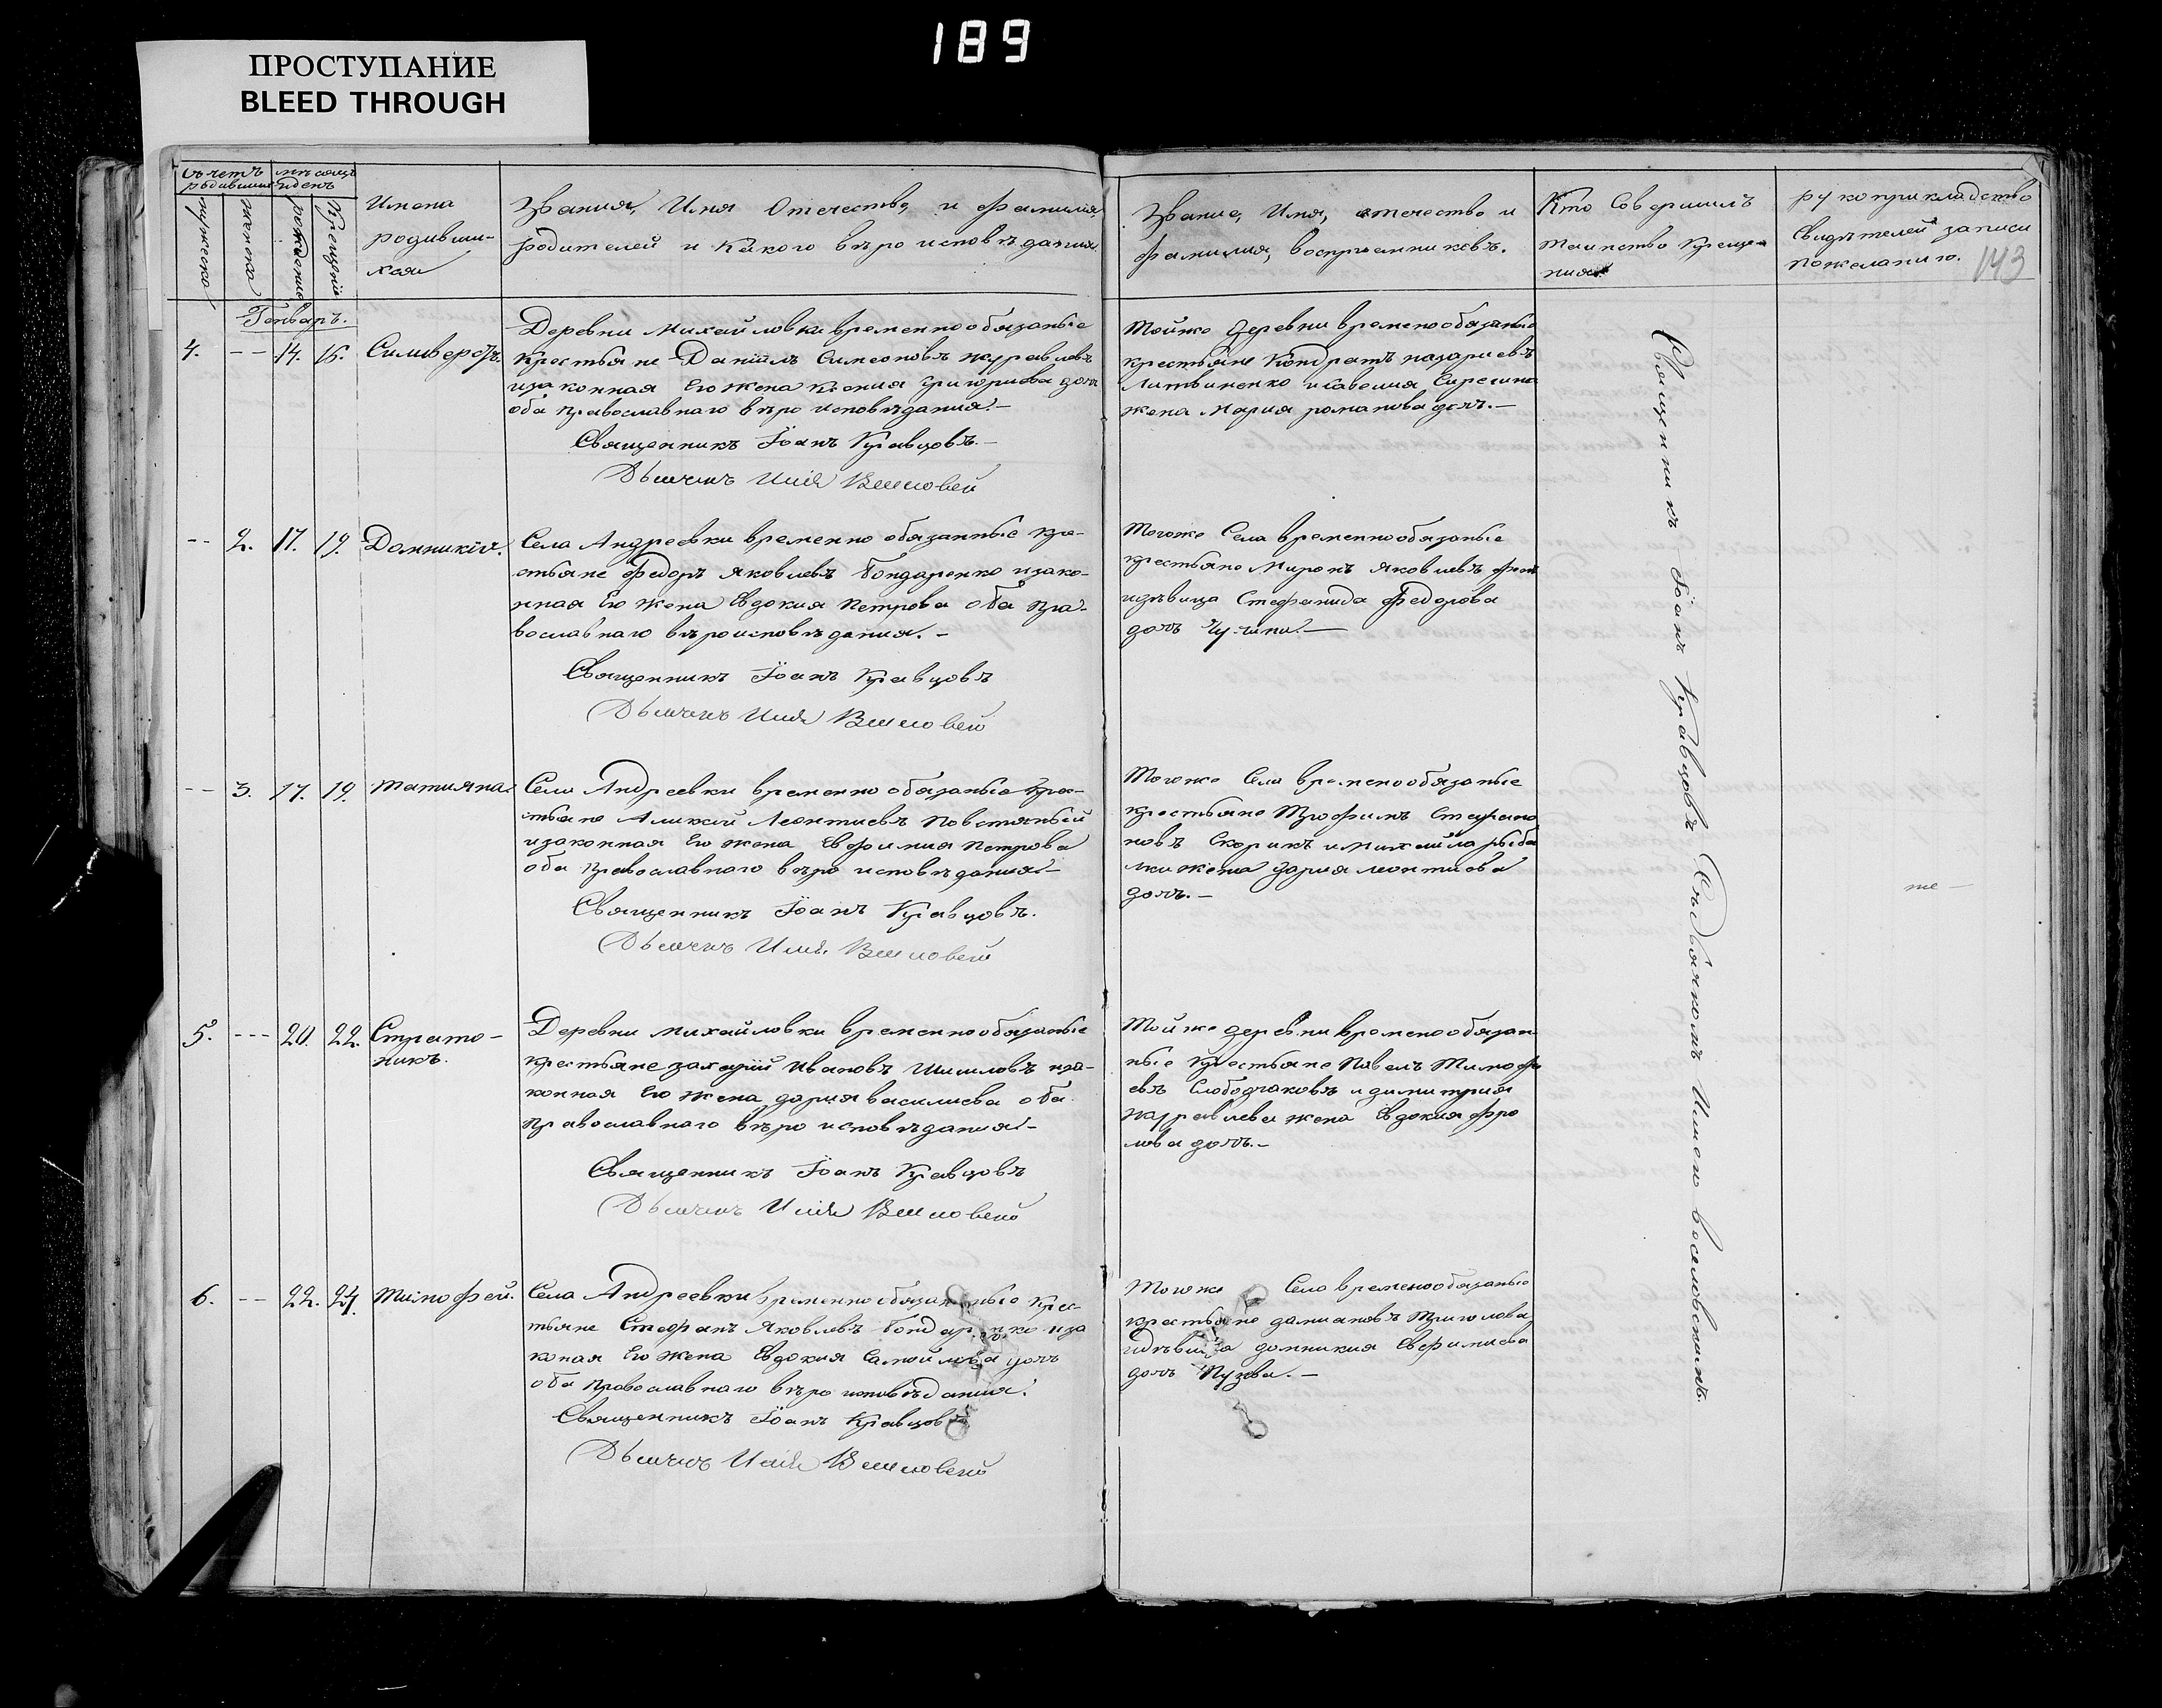 189
ПРОСТУПАНИЕ
BLEED THROUGH
Счетъ родившихся
мѣсяцъ и день
мужеска
женска
рожденія
крещенія
Имена
родивши-
хся
Звание, Имя Отечество, и фамилия
родителей и Какого вѣро исповѣдания
Звание, Имя, отечество и
фамилия, восприемниковъ.
Кто Совершилъ
таинство Креще-
ния
рукоприкладство
свидѣтелей записи
пожеланию.
143
Генварь.
4. -- 14. 15. Сильверстъ.
Деревни Михайловки временнообязаные
крестьяне Даніилъ Симеоновъ журавлевъ
изаконная Его жена ксения григориева дочь
оба православнаго вѣро исповѣдания.-
Священникъ Іоанъ Кравцовъ.-
Дьячекъ Илія
Тойже деревни временообязаные
крестьяне Кондратъ назариевъ
Литвиненко исавелия
жена Мария романова дочь.-
-- 2. 17. 19. Домникия.
Села Андреевки временно обязанные кре-
стьяне федоръ яковлевъ бондаренко изако-
нная Его жена Евдокия Петрова оба пра-
вославнаго вѣроисповѣдания.-
Священникъ Іоанъ Кравцовъ
Дьячекъ Илія
Тогоже Села временнообязаные
крестьяне Миронъ яковлевъ
идѣвица Стефанида федорова
дочь
-- 3. 17. 19. татияна.
Села Андреевки временно обязаные кре-
стьяне Леонтиевъ Повстяный
изаконная Его жена Евфимия Петрова
оба православнаго вѣро исповѣдания-
Священникъ Іоанъ Кравцовъ.
Дьячекъ Илія
Тогоже Села временообязаные
крестьяне Трофимъ Стефано
новъ Скорикъ и михайла рыба
лки жена дария леонтиева
дочь.-
те-
5. --- 20. 22. Страто-
никъ.
Деревни михайловки временнообязаные
крестьяне захарий Ивановъ Шиловъ иза-
конная Его жена дария василиева оба
православнаго вѣро исповѣдания-
Священникъ Іоанъ Кравцовъ
Дьячекъ Илія
Тойже деревни временообязан
ные крестьяне Павелъ Тимофе
евъ Слободчаковъ и димитрия
журавлева жена Евдокия фро
лова дочь.-
6. -- 22. 24. тимофей.
Села Андреевки временнообязаные крес-
тьяне Стефанъ Яковлевъ бондаренко иза
коная Его жена Евдокия Самойлова дочь
оба православнаго вѣро исповѣдания.
Священникъ Іоанъ Кравцовъ
Дьячекъ Илія
Тогоже Села временообязаные
крестьяне дамиановъ
идѣвица домникия Евфимиева
дочь Пузева.-
Священникъ Іоанъ Кравцовъ Съ Дьячкомъ Илиею